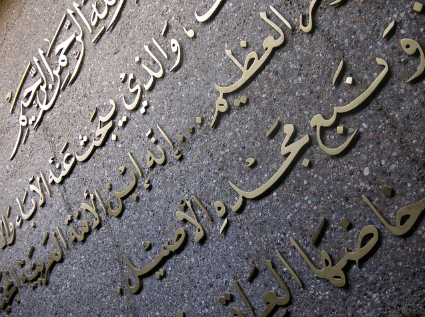 الله الرحمن الرحيم
، والذي يبحث عنه الآباء
العظيم ... إنه ابن الأمة العربية
ونبع مجده الأصيل.
خاضها